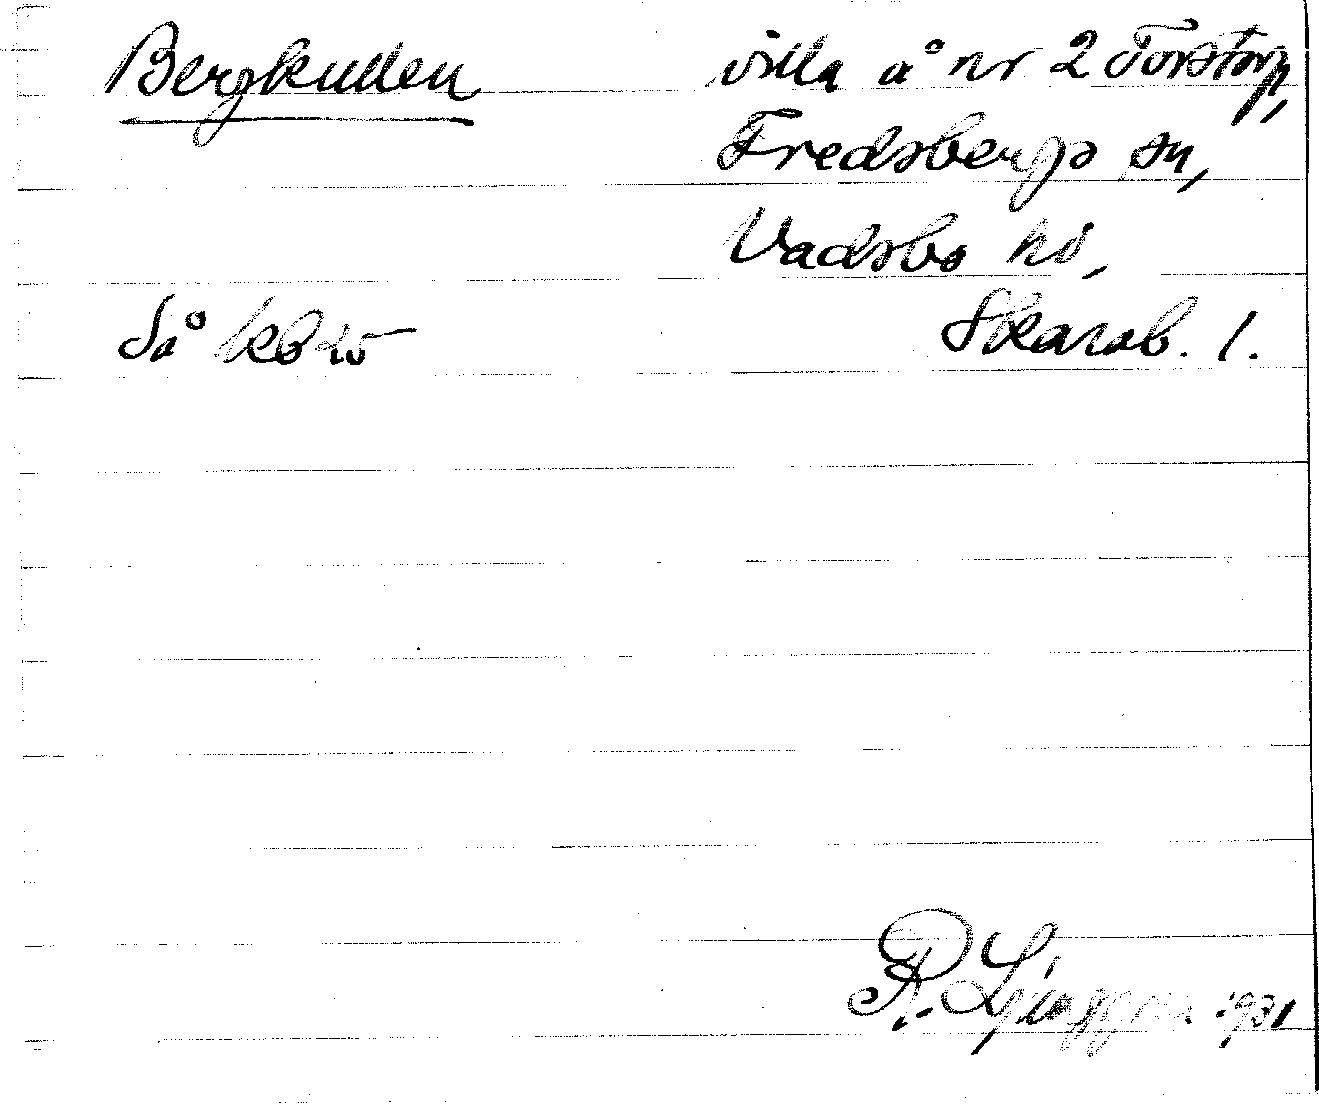 Bergkullen villa å nr 2 Torstorp,
Fredsbergs sn,
Vadsbo hd,
Så kb 25 Skarab. l.
R. Ljunggren 1931